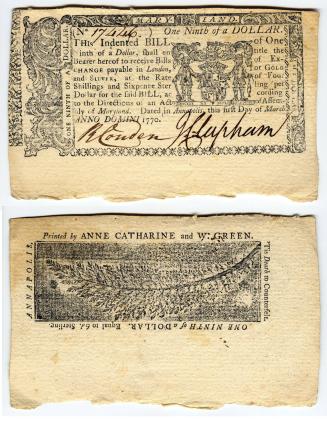 MARYLAND.
No. 17446. One Ninth of a DOLLAR.
THIS Indented BILL of One
Ninth of a Dollar, shall en title the
Bearer hereof to receive Bills of Ex
CHANGE payable in London, or GOLD
and SILVER, at the Rate of Four
Shillings and Sixpence Ster ling per
Dollar for the said BILL, ac cording
to the Directions of an Act of Assem-
bly of Maryland. Dated in Annapolis, this first Day of March
ANNO DOMINI 1770.
R Couden J Clapham
ONE NINTH OF A DOLLAR.
Printed by ANNE CATHARINE and W. GREEN.
ANNAPOLIS.
'Tis Death to Counterfeit.
ONE NINTH of a DOLLAR. Equal to 6d. Sterling.